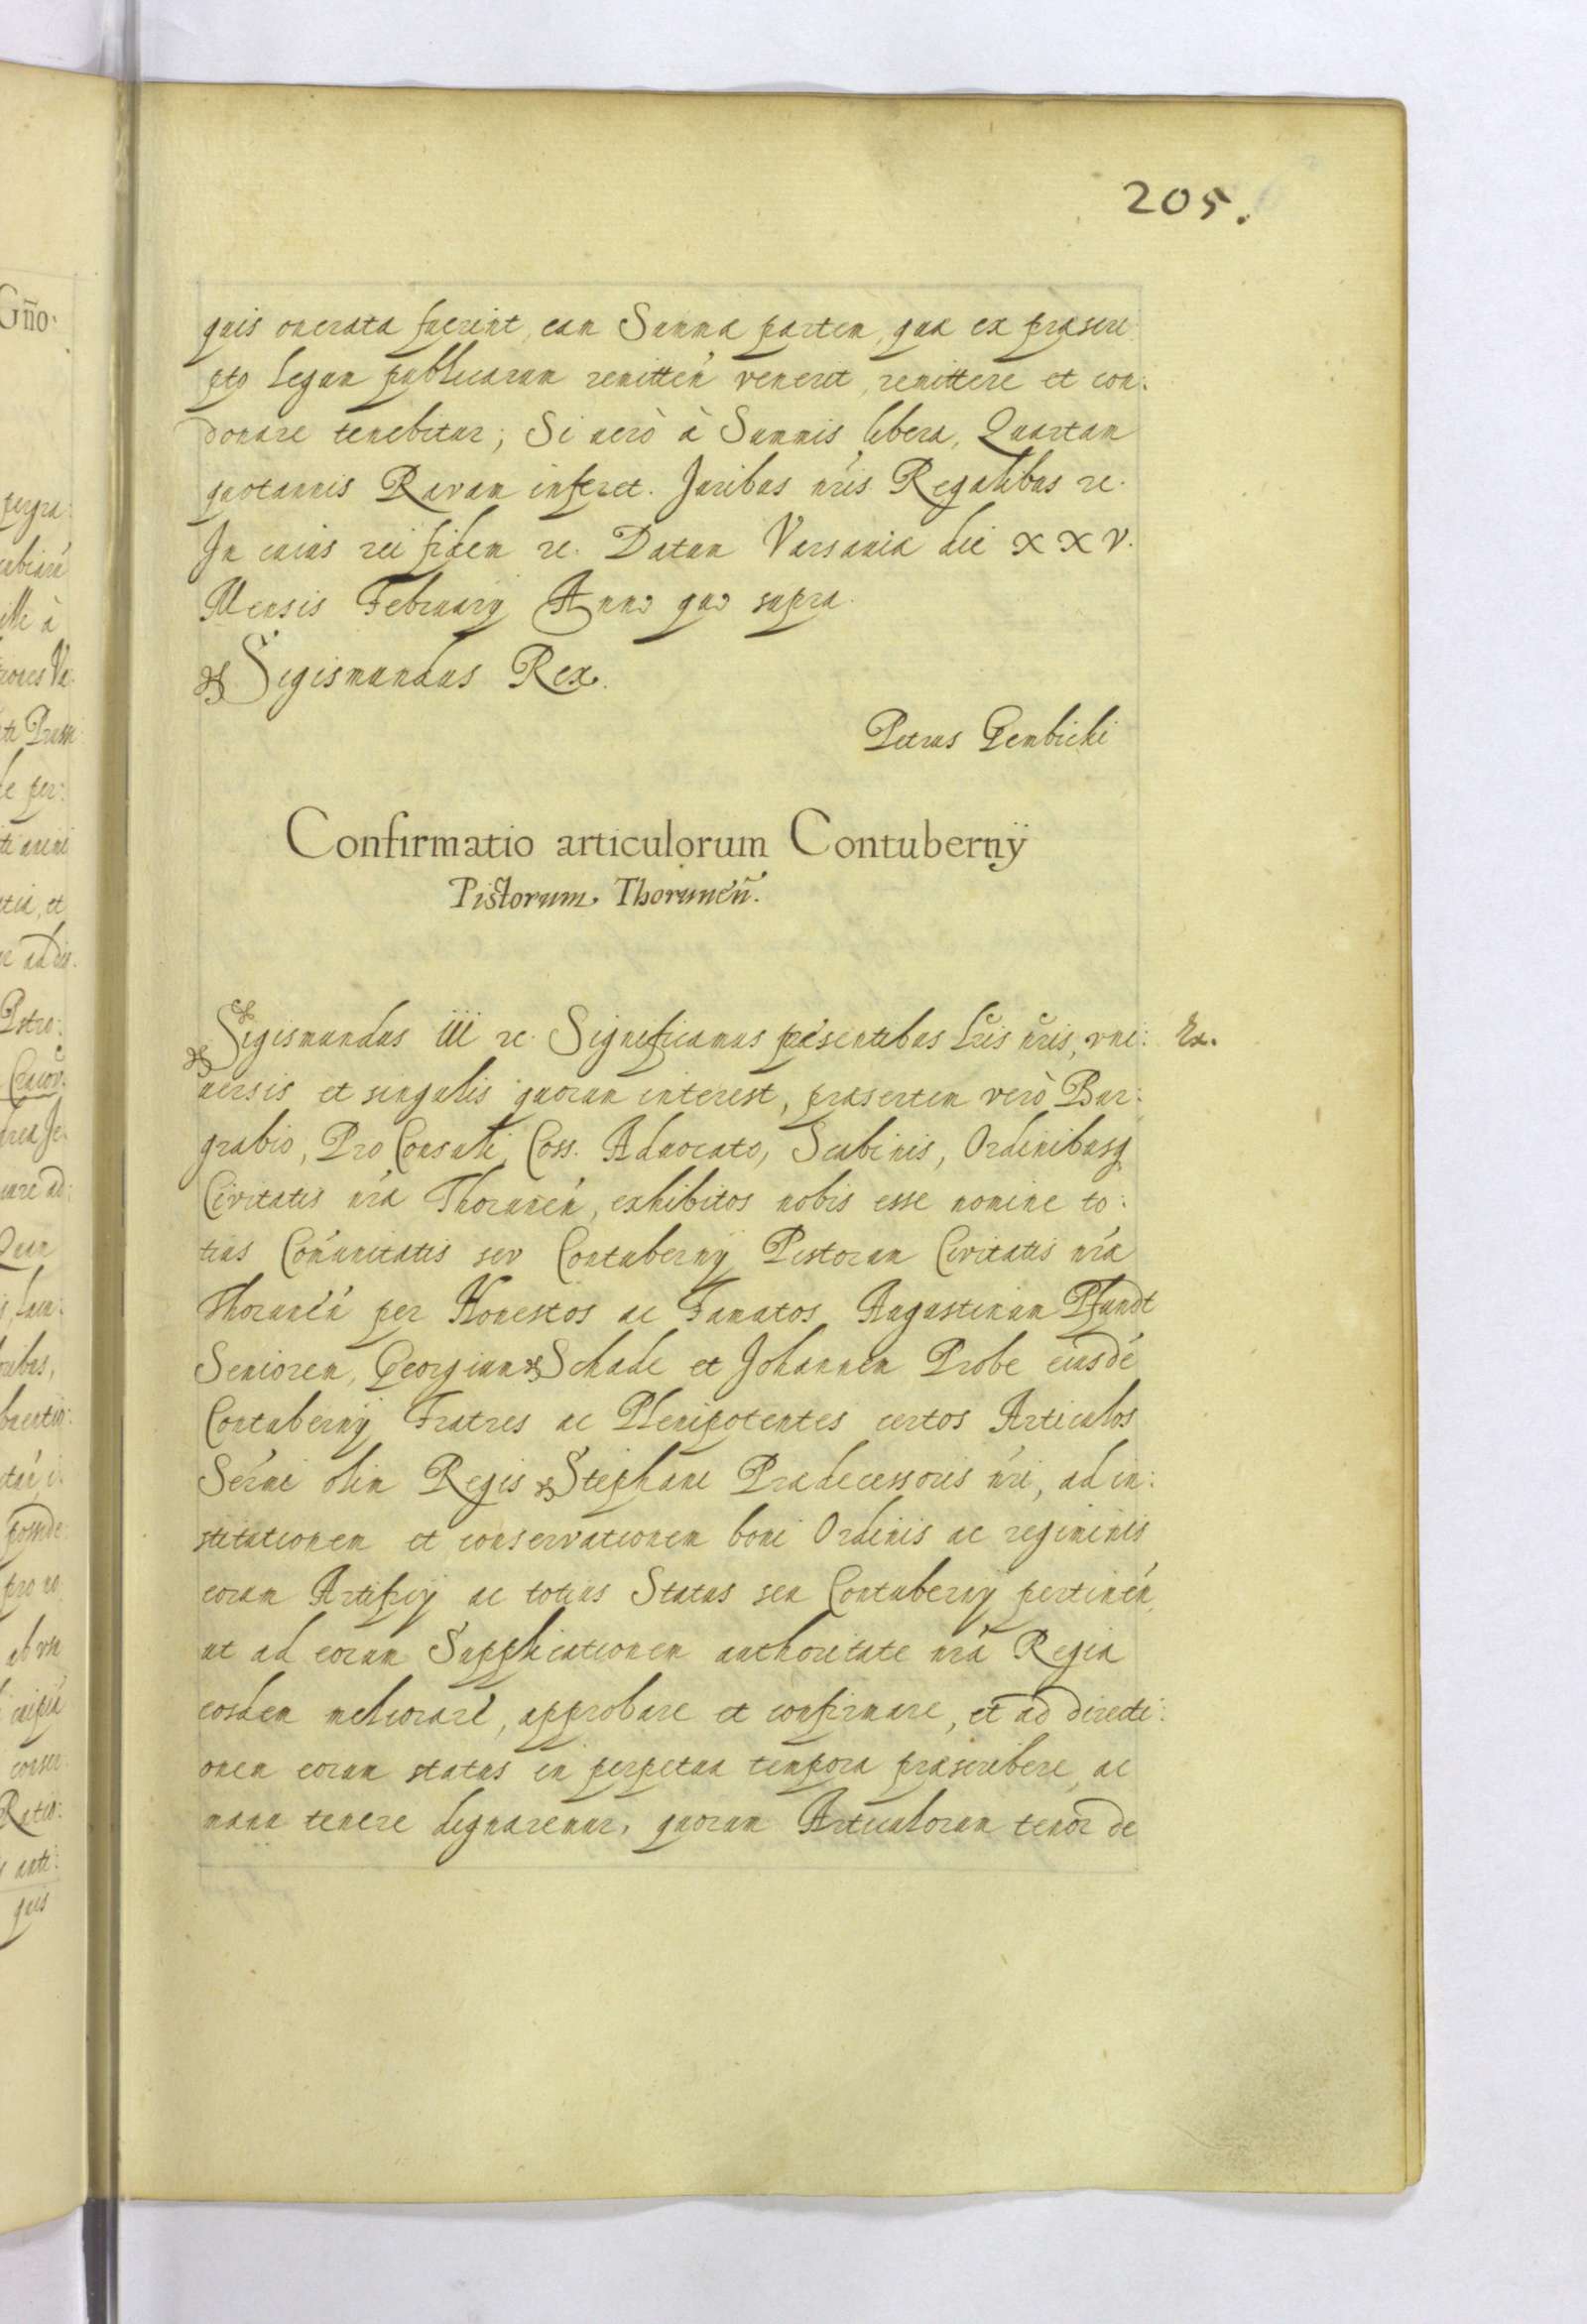 205.
quis onerata fuerint, eam Summa partem, qua ex praescri
pto Legum publicarum remitteń venerit, remittere et con:
donare tenebitur; Si uerò à Summis libera, Quartam
quotannis Ravam inferet. Juribus nr̃is Regalibus rc.
In cuius rei fidem rc. Datum Varsauia die XXV.
Mensis Februarij Anno quo supra.
Sigismundus Rex.
Petrus Gembicki
Confirmatio articulorum Contubernÿ
Pistorum Thorunen̄.
Sigismundus III rc. Significamus pr̃esentibus Lr̃is nr̃is, vni: Ex.
uersis et singulis quorum interest, praesertim verò Bur:
grabio, Pro Consuli, Coss. Aduocato, Scabinis, Ordinibusq
Civitatis nr̃a Thoruneń, exhibitos nobis esse nomine to:
tius Com̃unitatis sev Contubernij Pistorum Civitatis nr̃a
Thoruneń per Honestos ac Famatos Augustinum Pfundt
Seniorem, Georgium Schade et Johannem Probe eiusdẽ
Contubernij Fratres ac Plenipotentes certos Articulos
Serḿi olim Regis Stephani Pradecessoris nr̃i, ad in:
stitutionem et conservationem boni Ordinis ac regiminis
eorum Artificij ac totius Status seu Contubernij pertineń,
ut ad eorum Supplicationem authoritate nr̃a Regia
eosdem meliorare, approbare et confirmare, et ad directi:
onem eorum status in perpetua tempora praescribere, ac
manu tenere dignaremur, quorum Articulorum tenor de